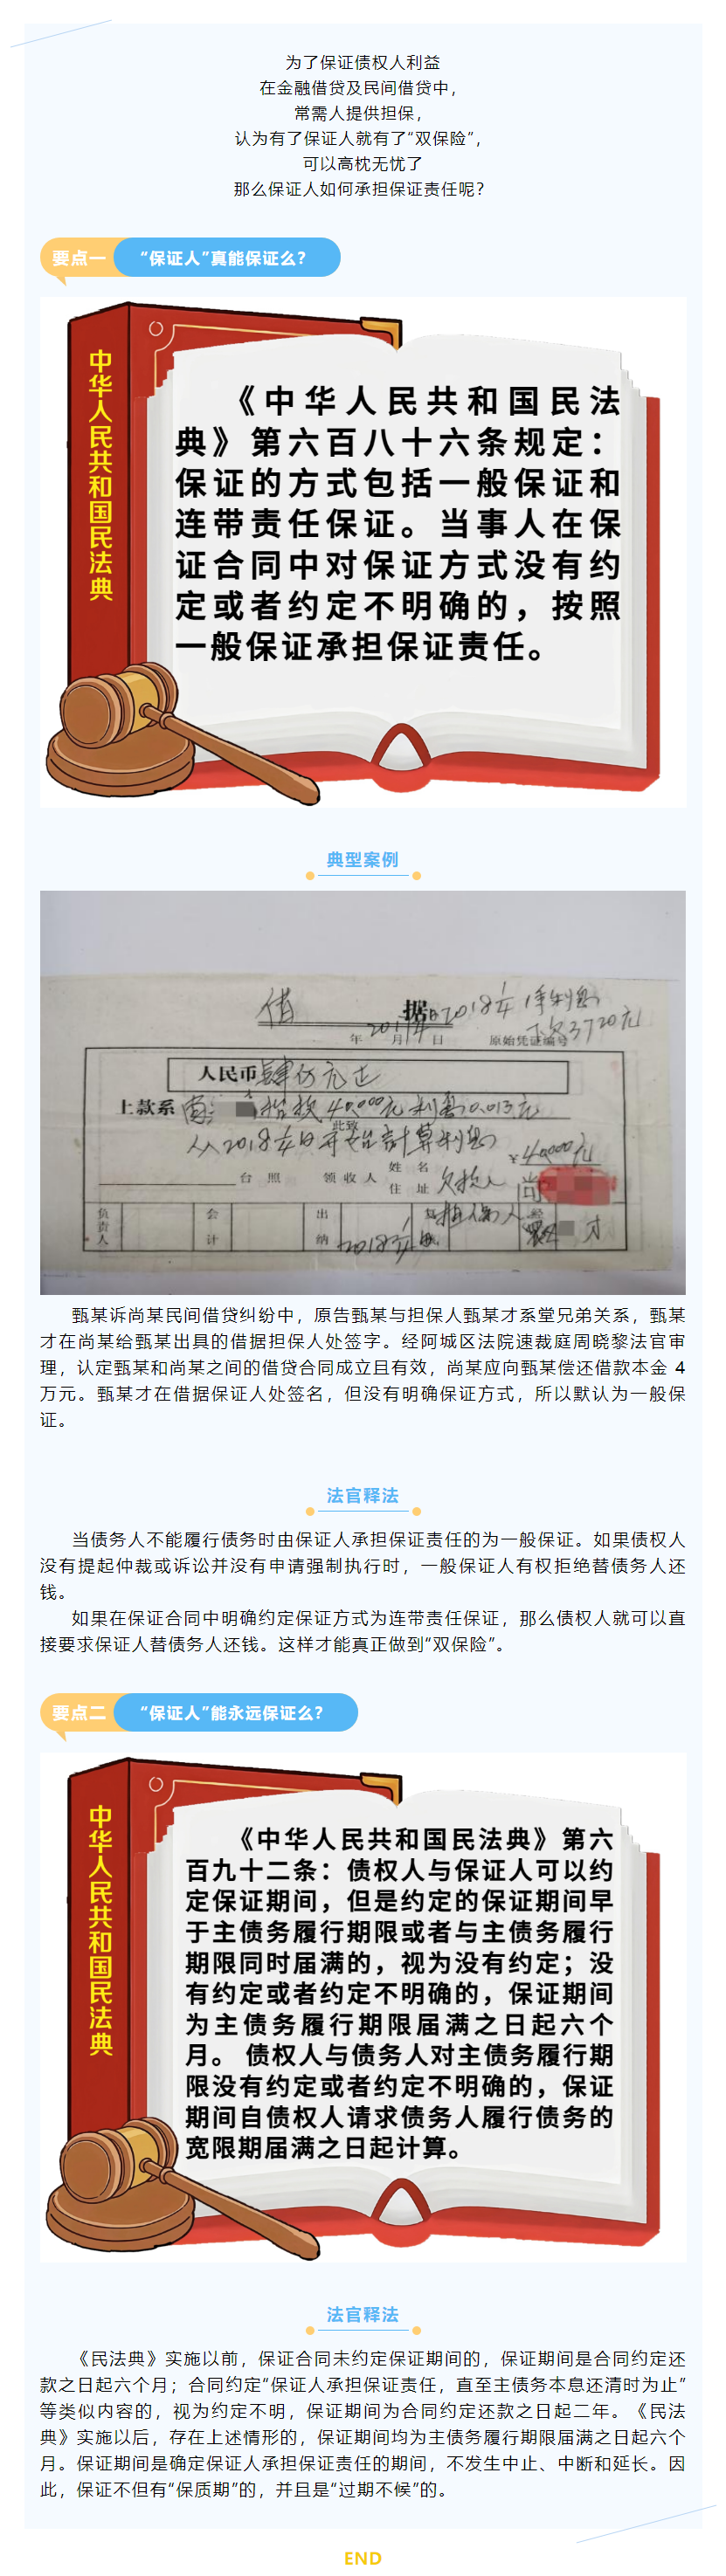 为了保证债权人利益
在金融借贷及民间借贷中，
常需人提供担保，
认为有了保证人就有了“双保险”，
可以高枕无忧了
那么保证人如何承担保证责任呢？
要点一 “保证人”真能保证么？
中华人民共和国民法典
《中华人民共和国民法
典》第六百八十六条规定：
保证的方式包括一般保证和
连带责任保证。当事人在保
证合同中对保证方式没有约
定或者约定不明确的，按照
一般保证承担保证责任。
典型案例
借 据
2018年
年 月 日 原始凭证编号
3720元
人民币肆仟元正
上款系 40,000元利息0.013元
此致
从2018年 日开始计算利息
¥40000元
台照 领收人 姓名 住址 欠款人 尚
负责人 会计 出纳 担保人 才
2018年
甄某诉尚某民间借贷纠纷中，原告甄某与担保人甄某才系堂兄弟关系，甄某
才在尚某给甄某出具的借据担保人处签字。经阿城区法院速裁庭周晓黎法官审
理，认定甄某和尚某之间的借贷合同成立且有效，尚某应向甄某偿还借款本金 4
万元。甄某才在借据保证人处签名，但没有明确保证方式，所以默认为一般保
证。
法官释法
当债务人不能履行债务时由保证人承担保证责任的为一般保证。如果债权人
没有提起仲裁或诉讼并没有申请强制执行时，一般保证人有权拒绝替债务人还
钱。
如果在保证合同中明确约定保证方式为连带责任保证，那么债权人就可以直
接要求保证人替债务人还钱。这样才能真正做到“双保险”。
要点二 “保证人”能永远保证么？
中华人民共和国民法典
《中华人民共和国民法典》第六
百九十二条：债权人与保证人可以约
定保证期间，但是约定的保证期间早
于主债务履行期限或者与主债务履行
期限同时届满的，视为没有约定；没
有约定或者约定不明确的，保证期间
为主债务履行期限届满之日起六个
月。 债权人与债务人对主债务履行期
限没有约定或者约定不明确的，保证
期间自债权人请求债务人履行债务的
宽限期届满之日起计算。
法官释法
《民法典》实施以前，保证合同未约定保证期间的，保证期间是合同约定还
款之日起六个月；合同约定“保证人承担保证责任，直至主债务本息还清时为止”
等类似内容的，视为约定不明，保证期间为合同约定还款之日起二年。《民法
典》实施以后，存在上述情形的，保证期间均为主债务履行期限届满之日起六个
月。保证期间是确定保证人承担保证责任的期间，不发生中止、中断和延长。因
此，保证不但有“保质期”的，并且是“过期不候”的。
END